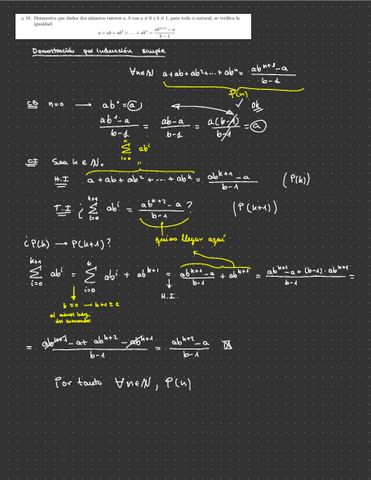 10. Demuestra que dados dos números enteros a, b con a ≠ 0 y b ≠ 1, para todo n natural, se verifica la
igualdad
a + ab + ab² + ... + abⁿ = (abⁿ⁺¹ − a)/(b − 1)
Demostración por inducción simple
∀n∈ℕ a + ab + ab² + ... + abⁿ = (abⁿ⁺¹ − a)/(b − 1)
P(n)
CB n=0 → ab⁰ = a ✓ Ok
(ab¹ − a)/(b − 1) = (ab − a)/(b − 1) = a(b − 1)/(b − 1) = a
∑ᵢ₌₀ᵏ abⁱ
"
CI Sea k ∈ ℕ.
H.I a + ab + ab² + ... + abᵏ = (abᵏ⁺¹ − a)/(b − 1) (P(k))
T.I ¿ ∑ᵢ₌₀ᵏ⁺¹ abⁱ = (abᵏ⁺² − a)/(b − 1) ? (P(k+1))
¿P(k) → P(k+1)? quiero llegar aquí
∑ᵢ₌₀ᵏ⁺¹ abⁱ = ∑ᵢ₌₀ᵏ abⁱ + abᵏ⁺¹ = (abᵏ⁺¹ − a)/(b − 1) + abᵏ⁺¹ = (abᵏ⁺¹ − a + (b−1)·abᵏ⁺¹)/(b − 1) =
H.I.
k=0 → k+1=1
al menos hay
dos sumandos
= (abᵏ⁺¹ − a + abᵏ⁺² − abᵏ⁺¹)/(b − 1) = (abᵏ⁺² − a)/(b − 1)
Por tanto ∀n∈ℕ, P(n)